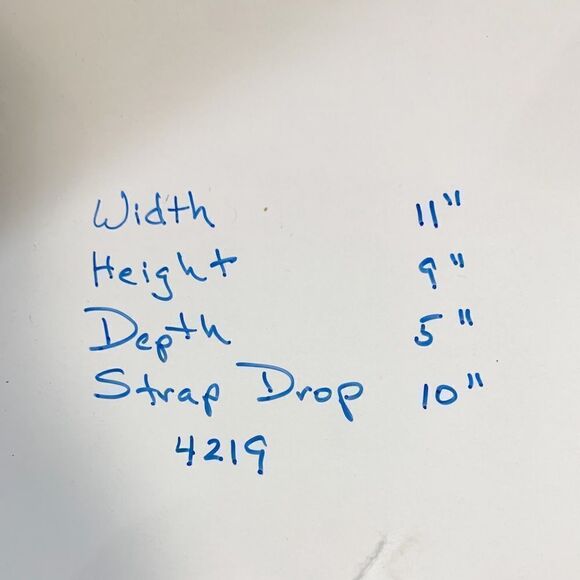 Width 11"
Height 9"
Depth 5"
Strap Drop 10"
4219